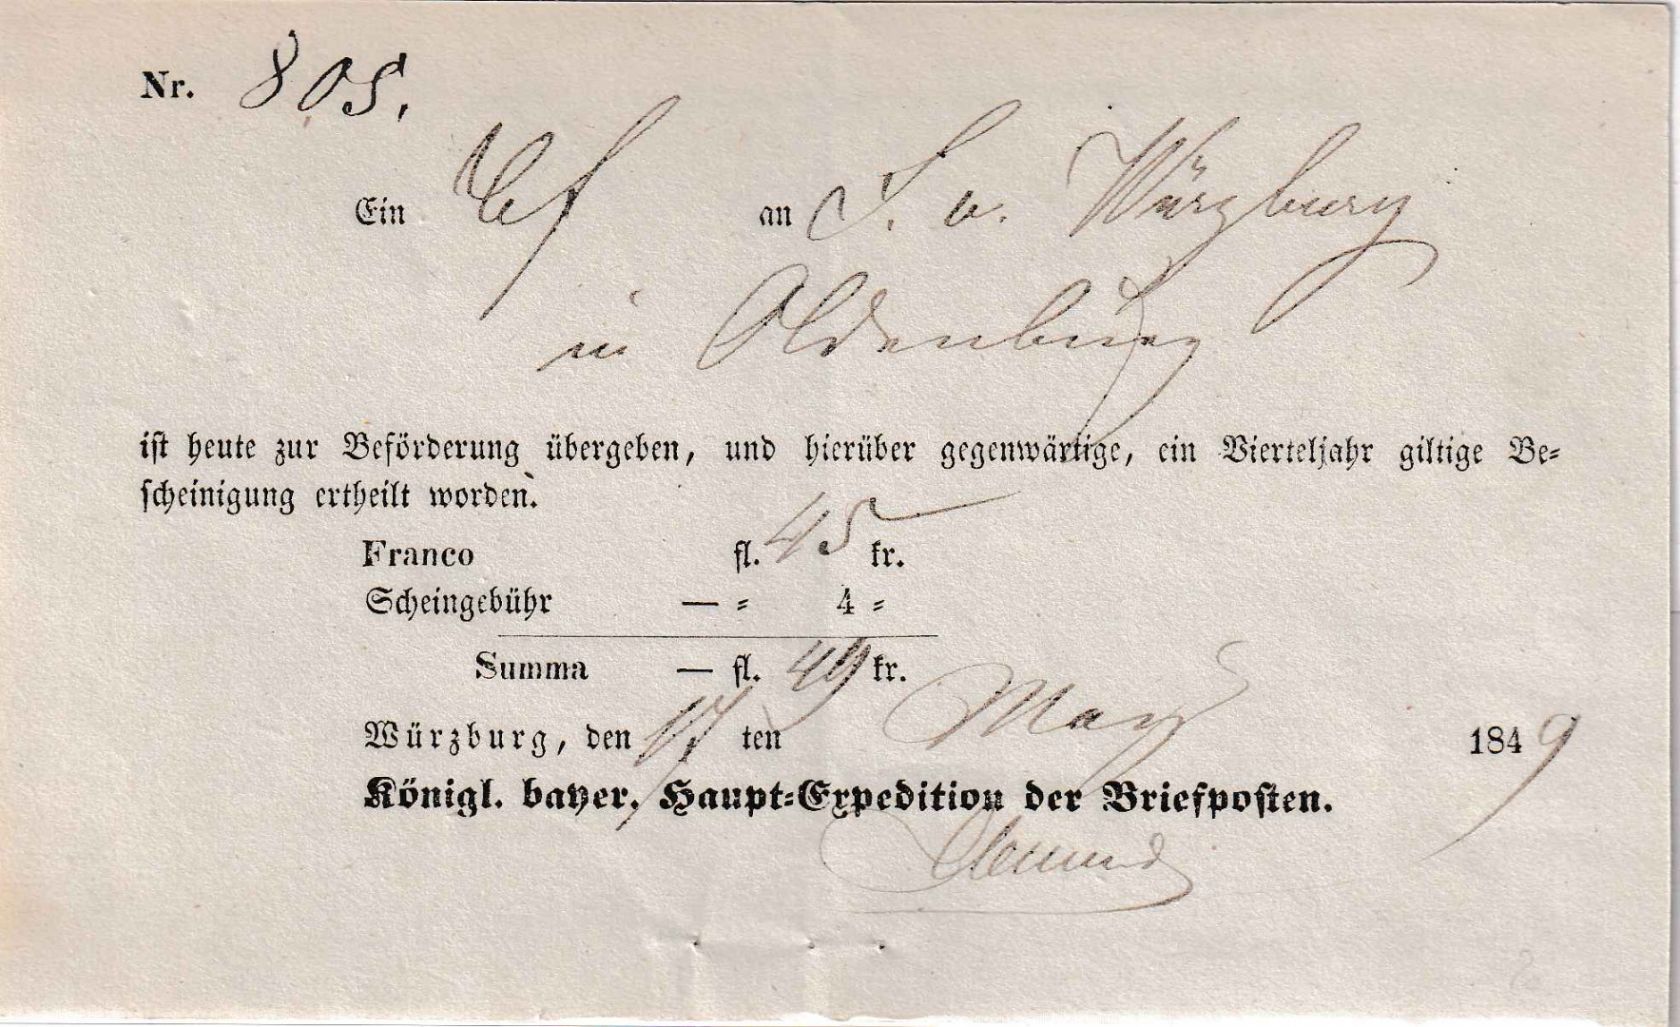 Nr. 805.
Ein Bf an F. v. Würzburg
in Oldenburg
ist heute zur Beförderung übergeben, und hierüber gegenwärtige, ein Vierteljahr giltige Be-
scheinigung ertheilt worden.
Franco fl. 45 kr.
Scheingebühr — = 4 =
Summa — fl. 49 kr.
Würzburg, den 17 ten May 1849
Königl. bayer. Haupt-Expedition der Briefposten.